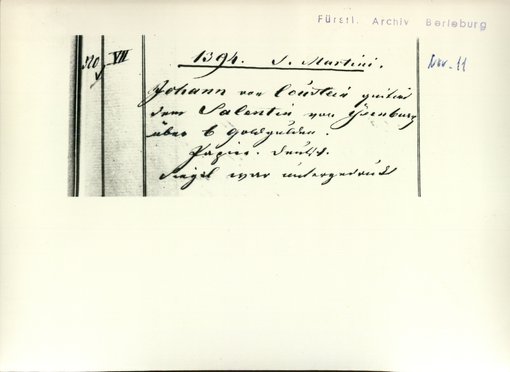 Fürstl. Archiv Berleburg
VII
1394. S. Martini.
Nov. 11
Johann von quitirt
dem Salentin von Ysenburg
über 6 Goldgulden.
Papier. deutsch.
Siegel war untergedruckt